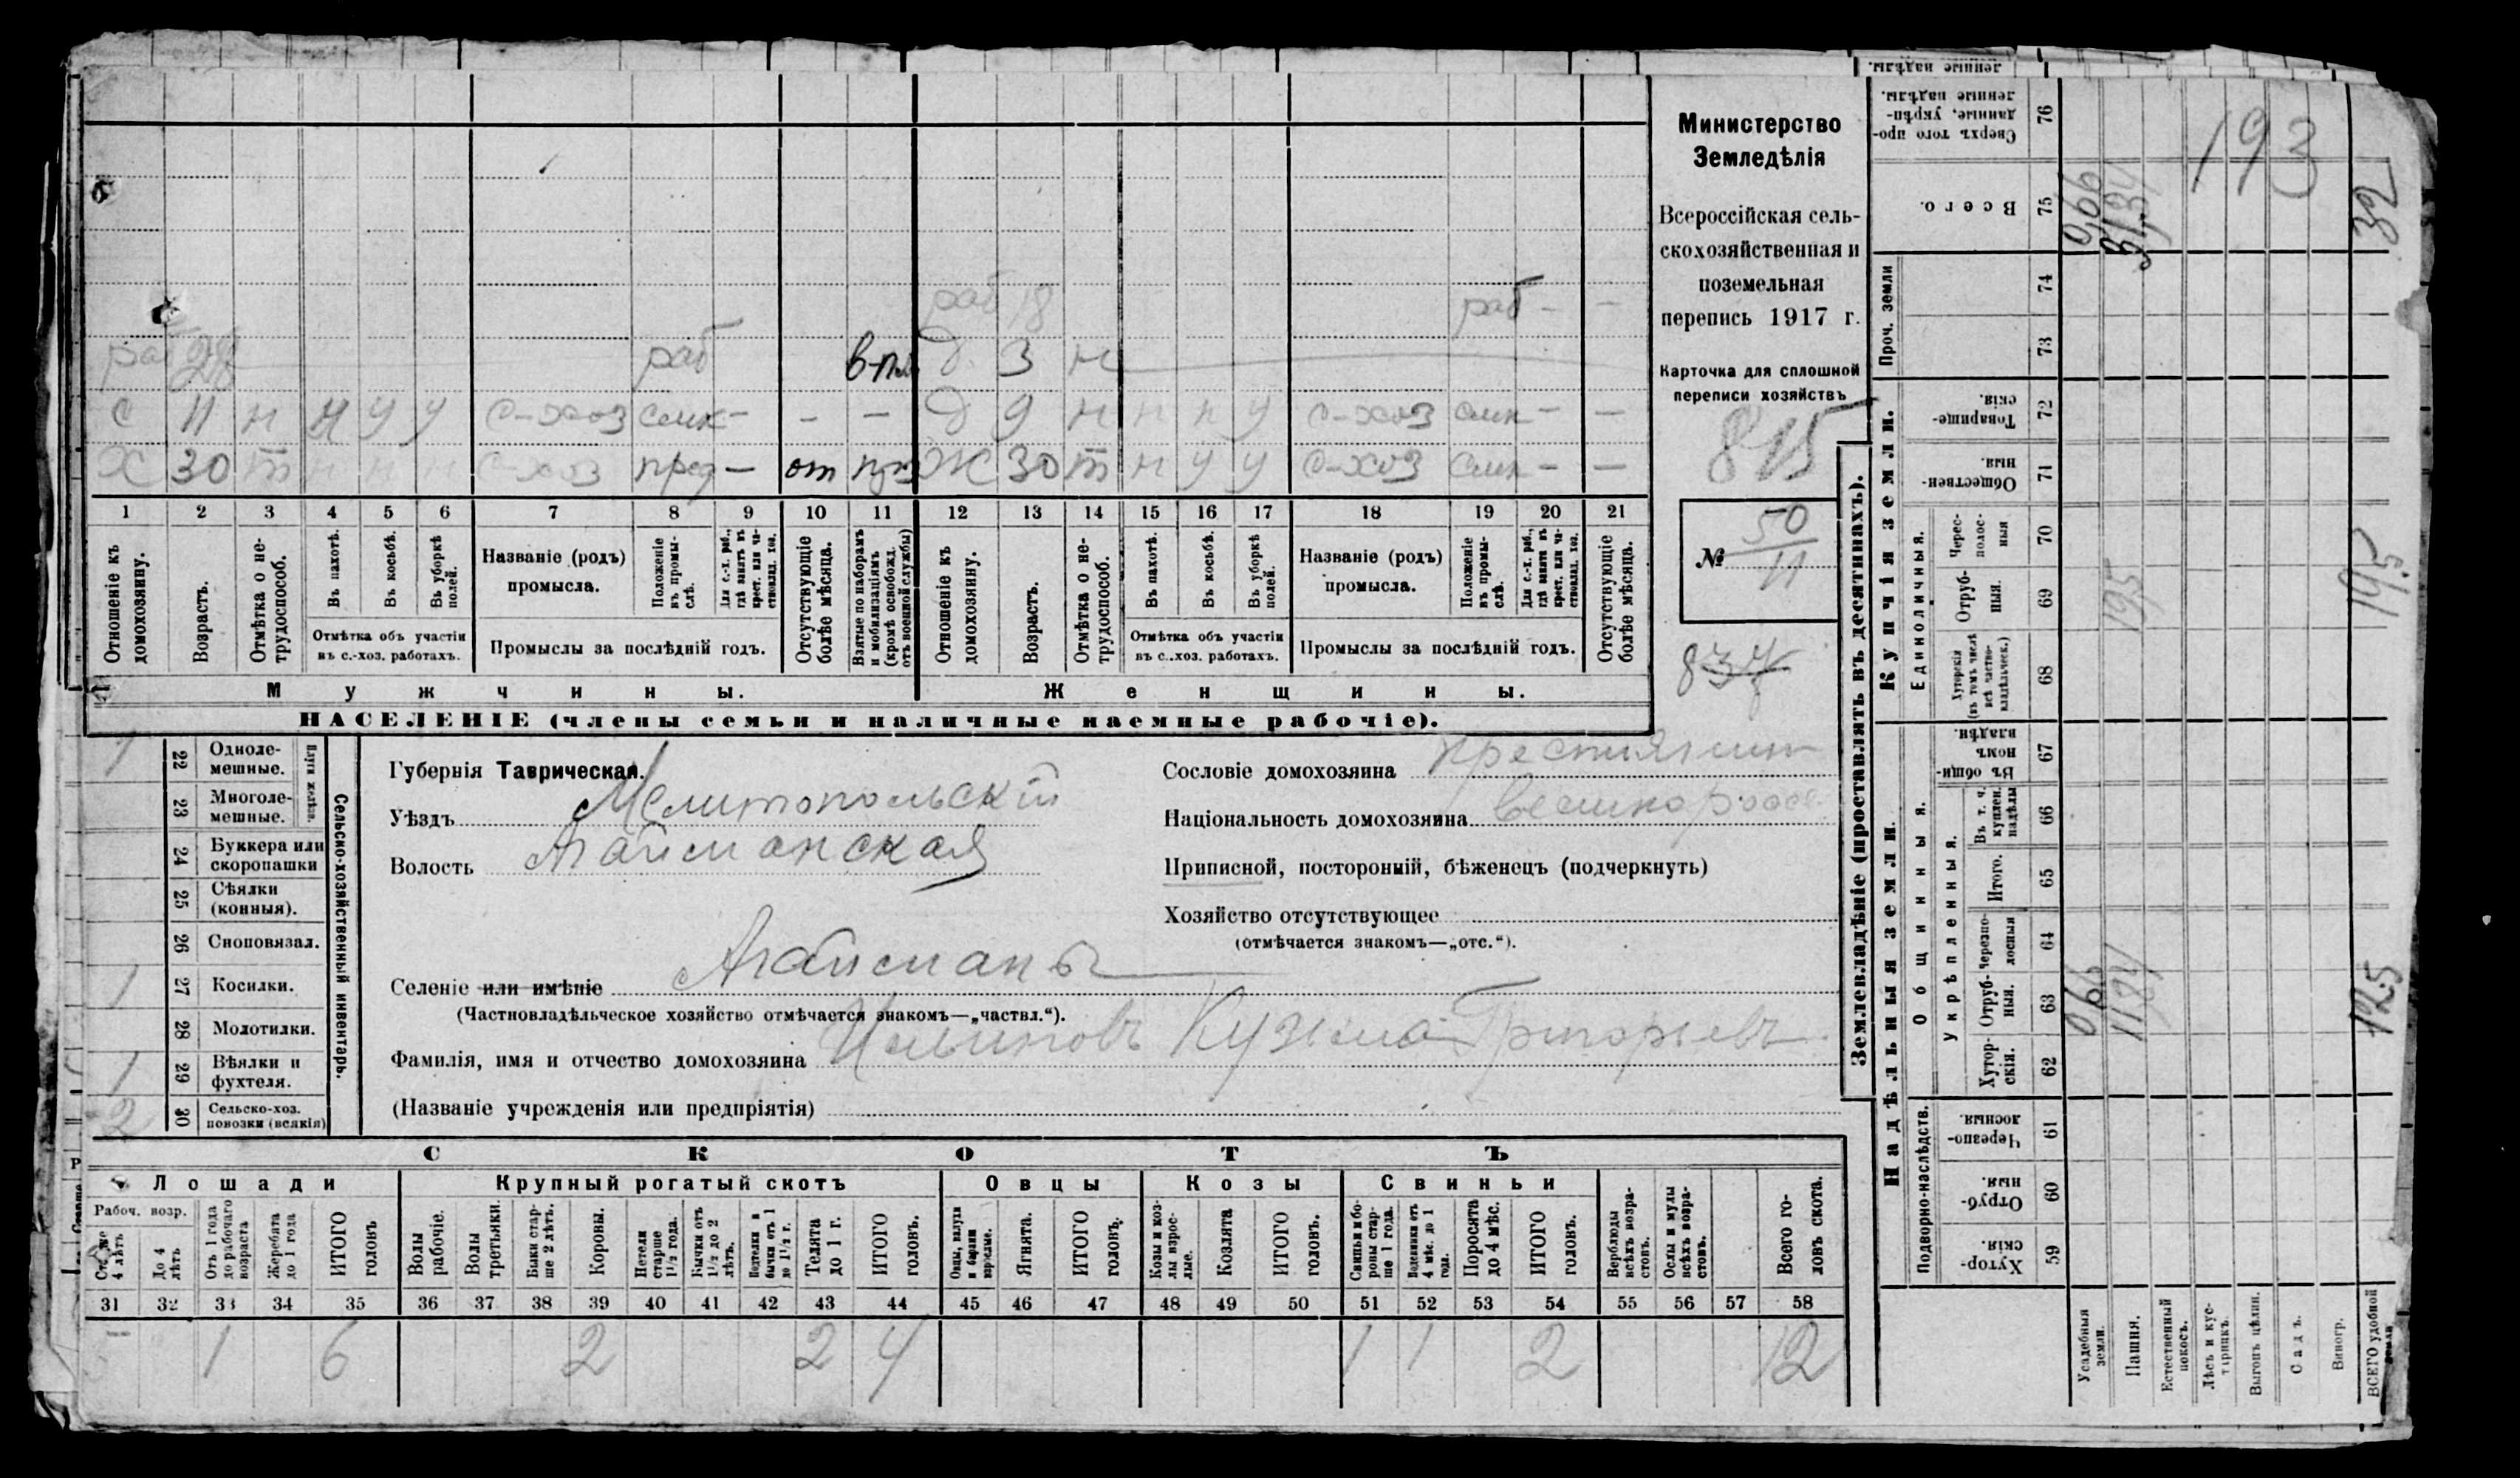 раб 18 раб - -
раб раб в-пл д. 3 н
с 11 н н у у с-хоз смк - - - д 9 н н н у с-хоз смк - -
х 30 т н н н с-хоз пред - от ж 30 т н у у с-хоз смк - -
1 2 3 4 5 6 7 8 9 10 11 12 13 14 15 16 17 18 19 20 21
Отношеніе къ домохозяину.
Возрастъ.
Отмѣтка о не-трудоспособ.
Въ пахотѣ.
Въ косьбѣ.
Въ уборкѣ полей.
Отмѣтка объ участіи
въ с.-хоз. работахъ.
Названіе (родъ)
промысла.
Положеніе въ промы-слѣ.
Для с.-х. раб., гдѣ занятъ въ крест. или ча-стновлад. хоз.
Промыслы за послѣдній годъ.
Отсутствующіе болѣе мѣсяца.
Взятые по наборамъ и мобилизаціямъ (кромѣ освобожд. отъ военной службы)
Отношеніе къ домохозяину.
Возрастъ.
Отмѣтка о не-трудоспособ.
Въ пахотѣ.
Въ косьбѣ.
Въ уборкѣ полей.
Отмѣтка объ участіи
въ с.-хоз. работахъ.
Названіе (родъ)
промысла.
Положеніе въ промы-слѣ.
Для с.-х. раб., гдѣ занятъ въ крест. или ча-стновлад. хоз.
Промыслы за послѣдній годъ.
Отсутствующіе болѣе мѣсяца.
Мужчины. Женщины.
НАСЕЛЕНІЕ (члены семьи и наличные наемные рабочіе).
Министерство
Земледѣлія
Всероссійская сель-
скохозяйственная и
поземельная
перепись 1917 г.
Карточка для сплошной
переписи хозяйствъ
815
№ 50
11
Сельско-хозяйственный инвентарь.
Плуги желѣзн.
1 22 Одноле-мешные.
23 Многоле-мешные.
24 Буккера или скоропашки
25 Сѣялки (конныя).
26 Сноповязал.
1 27 Косилки.
28 Молотилки.
1 29 Вѣялки и фухтеля.
2 30 Сельско-хоз. повозки (всякія)
Губернія Таврическая.
Уѣздъ Мелитопольскій
Волость Агайманская
Селеніе или имѣніе Агайманы
(Частновладѣльческое хозяйство отмѣчается знакомъ—„частвл.“).
Фамилія, имя и отчество домохозяина Кузьма Григорьевъ
(Названіе учрежденія или предпріятія)
Сословіе домохозяина крестьянинъ
Національность домохозяина великоросс
Приписной, посторонній, бѣженецъ (подчеркнуть)
Хозяйство отсутствующее
(отмѣчается знакомъ—„отс.“).
СКОТЪ
Лошади Крупный рогатый скотъ Овцы Козы Свиньи
Рабоч. возр.
Старше 4 лѣтъ
До 4 лѣтъ
Отъ 1 года до рабочаго возраста
Жеребята до 1 года
ИТОГО головъ
Волы рабочіе.
Волы третьяки.
Быки стар-ше 2 лѣтъ.
Коровы.
Нетели старше 1½ года.
Бычки отъ 1½ до 2 лѣтъ.
Подтелки и бычки отъ 1 до 1½ г.
Телята до 1 г.
ИТОГО головъ.
Овцы, валухи и бараны взрослые.
Ягнята.
ИТОГО головъ.
Козы и коз-лы взрос-лые.
Козлята
ИТОГО головъ.
Свиньи и бо-ровы стар-ше 1 года.
Подсвинки отъ 4 мѣс. до 1 года.
Поросята до 4 мѣс.
ИТОГО головъ.
Верблюды всѣхъ возра-стовъ.
Ослы и мулы всѣхъ возра-стовъ.
Всего го-ловъ скота.
31 32 33 34 35 36 37 38 39 40 41 42 43 44 45 46 47 48 49 50 51 52 53 54 55 56 57 58
1 6 2 2 4 1 1 2 12
Землевладѣніе (проставлять въ десятинахъ).
Надѣльныя земли.
Купчія земли.
Проч. земли
Подворно-наслѣдств.
Общинныя.
Укрѣпленныя.
Единоличныя.
ленные надѣлы.
Сверхъ того про-данные, укрѣп-ленные надѣлы. 76
Всего. 75
74
73
Товарище-скія. 72
Обществен-ныя. 71
Черес-полос-ныя 70
Отруб-ныя. 69
Хуторскія (въ томъ числѣ всѣ частно-владѣльческ.) 68
Въ общи-номъ владѣн. 67
Въ т. ч. куплен. надѣлы 66
Итого. 65
Черезпо-лосныя 64
Отруб-ныя. 63
Хутор-скія. 62
Черезпо-лосныя. 61
Отруб-ныя. 60
Хутор-скія. 59
Усадебныя земли.
Пашня.
Естественный покосъ.
Лѣсъ и кус-тарникъ.
Выгонъ цѣлин.
Садъ.
Виногр.
ВСЕГО удобной земли
193
0,66
32
195
19.5
0,66
11,84
12.5